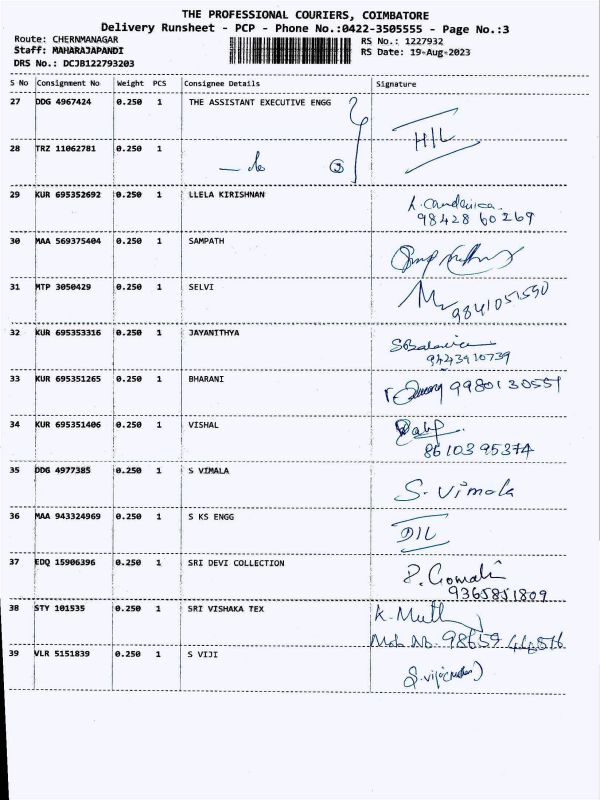 THE PROFESSIONAL COURIERS, COIMBATORE
Delivery Runsheet - PCP - Phone No.:0422-3505555 - Page No.:3
Route: CHERNMANAGAR
RS No.: 1227932
Staff: MAHARAJAPANDI
RS Date: 19-Aug-2023
DRS No.: DCJB122793203
S No Consignment No Weight PCS Consignee Details Signature
27 DDG 4967424 0.250 1 THE ASSISTANT EXECUTIVE ENGG
H/L
28 TRZ 11062781 0.250 1
— do
29 KUR 695352692 0.250 1 LLELA KIRISHNAN
98428 60269
30 MAA 569375404 0.250 1 SAMPATH
31 MTP 3050429 0.250 1 SELVI
9841051590
32 KUR 695353316 0.250 1 JAYANITHYA
9443910739
33 KUR 695351265 0.250 1 BHARANI
9980130551
34 KUR 695351406 0.250 1 VISHAL
8610395374
35 DDG 4977385 0.250 1 S VIMALA
S. Vimola
36 MAA 943324969 0.250 1 S KS ENGG
37 EDQ 15906396 0.250 1 SRI DEVI COLLECTION
P. Gomati
9365851809
38 STY 101535 0.250 1 SRI VISHAKA TEX
K. Muth
Mob No. 98659
39 VLR 5151839 0.250 1 S VIJI